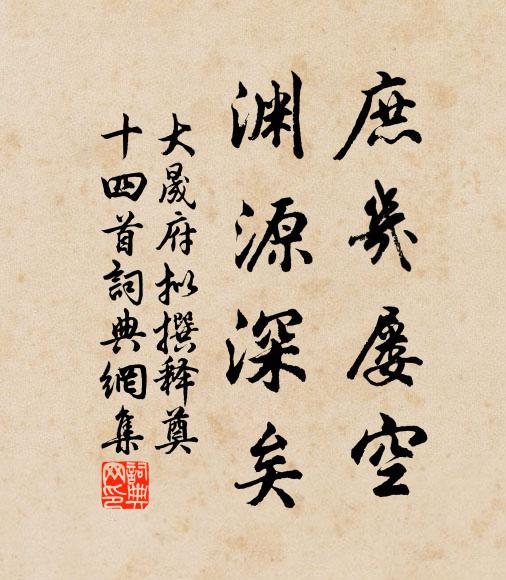 庶幾屡空
渊源深矣
大晟府拟撰释奠
十四首詞典網集
詞典网印